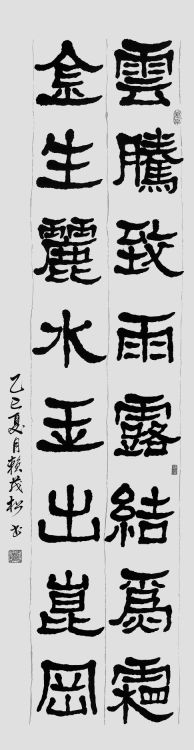 雲騰致雨露結為霜
金生麗水玉出崑岡
乙巳夏月賴茂松書